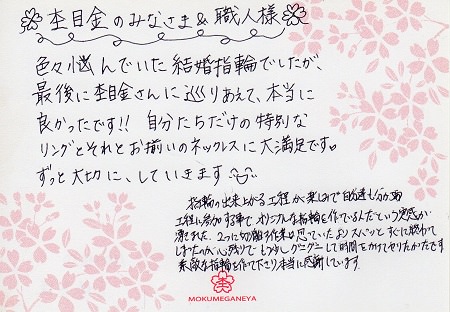 杢目金のみなさま&職人様
色々悩んでいた結婚指輪でしたが、
最後に杢目金さんに巡りあえて、本当に
良かったです!! 自分たちだけの特別な
リングとそれとお揃いのネックレスに大満足です。
ずっと大切に、していきます
指輪の出来上がる工程が楽しみで
工程に参加する事でオリジナルな指輪を作っているんだという実感が
湧きました。2つに切離す作業は思っていたよりスパッとすぐに終わって
しまったのが心残りで もう少しグニグニして時間をかけてやりたかったです
素敵な指輪を作って下さり本当に感謝しています。
MOKUMEGANEYA